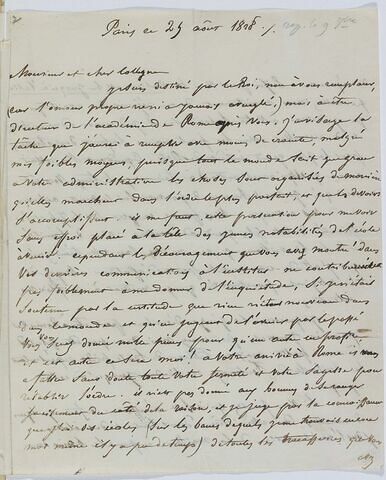 Paris ce 25 août 1828 / rep. le 9 7bre
Monsieur et cher Collegue
je suis destiné par le Roi, non à vous remplacer,
(car l'amour propre ne m'a jamais aveuglé,) mais à être
directeur de l'académie de Rome après vous. J'envisage la
tâche que j'aurai à remplir avec moins de crainte, malgré
mes foibles moyens, puisque tout le monde sait que grace
à votre administration les choses sont organisées de manière
qu'elles marchent dans l'ordre le plus parfait, et que les devoirs
s'accomplissent il me faut cette persuasion pour me voir
sans effroi placé à la tête des jeunes notabilités de l'école
à venir. cependant le découragement que vous avez montré dans
vos dernières communications à l'institut ne contribue
pas foiblement à me donner de l'inquiétude, si je n'étais
soutenu par la certitude que rien n'étant nouveau dans
dans le monde et qu'en jugeant de l'avenir par le passé
vous avez donné mille preuves pour qu'un autre en profite
et cet autre ce sera moi! à votre arrivée à Rome il vous
a fallu sans doute toute votre fermeté et votre sagesse pour
rétablir l'ordre. il n'est pas donné aux hommes de se ranger
facilement du côté de la raison, et je juge par la connoissance
que j'ai des écoles (sur les bancs desquels je me trouvais encore
moi même il y a peu de temps) de toutes les tracasseries que vous
avez